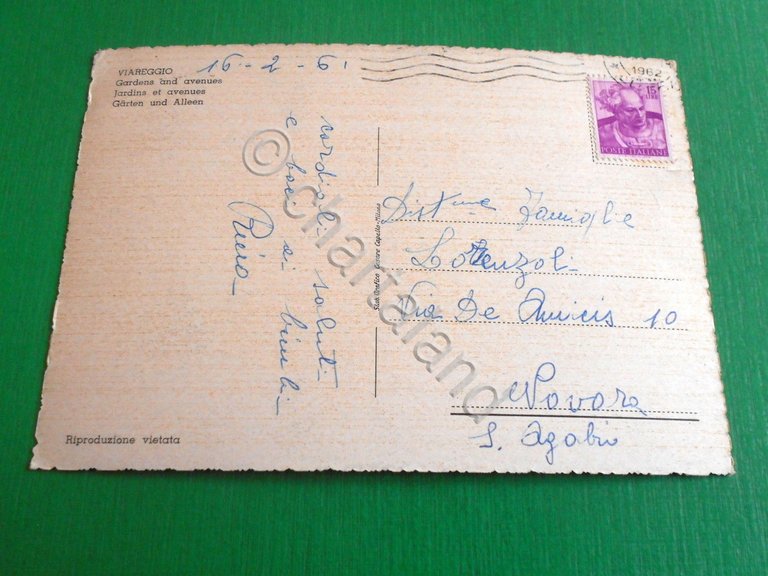 VIAREGGIO
Gardens and avenues
Jardins et avenues
Gärten und Alleen
16-2-61
1962
15
LIRE
POSTE ITALIANE
cordiali saluti
e baci ai bimbi
Dist.me Famiglie
Lorenzoli
Via De Amicis 10
Novara
S. Agabio
Riproduzione vietata
© chartaland